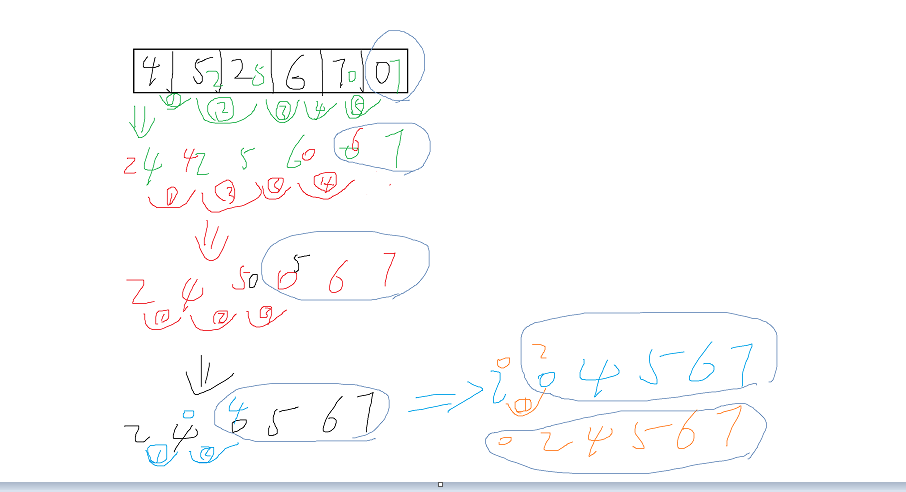 4 5 2 2 5 6 7 0 0 7
1 2 3 4 5
2 4 4 2 5 6 0 6 7
1 3 4
2 4 5 0 0 5 6 7
1 2 3
0 4
2 4 5 6 7
1 2
0 2
2 0 4 5 6 7
0 2 4 5 6 7